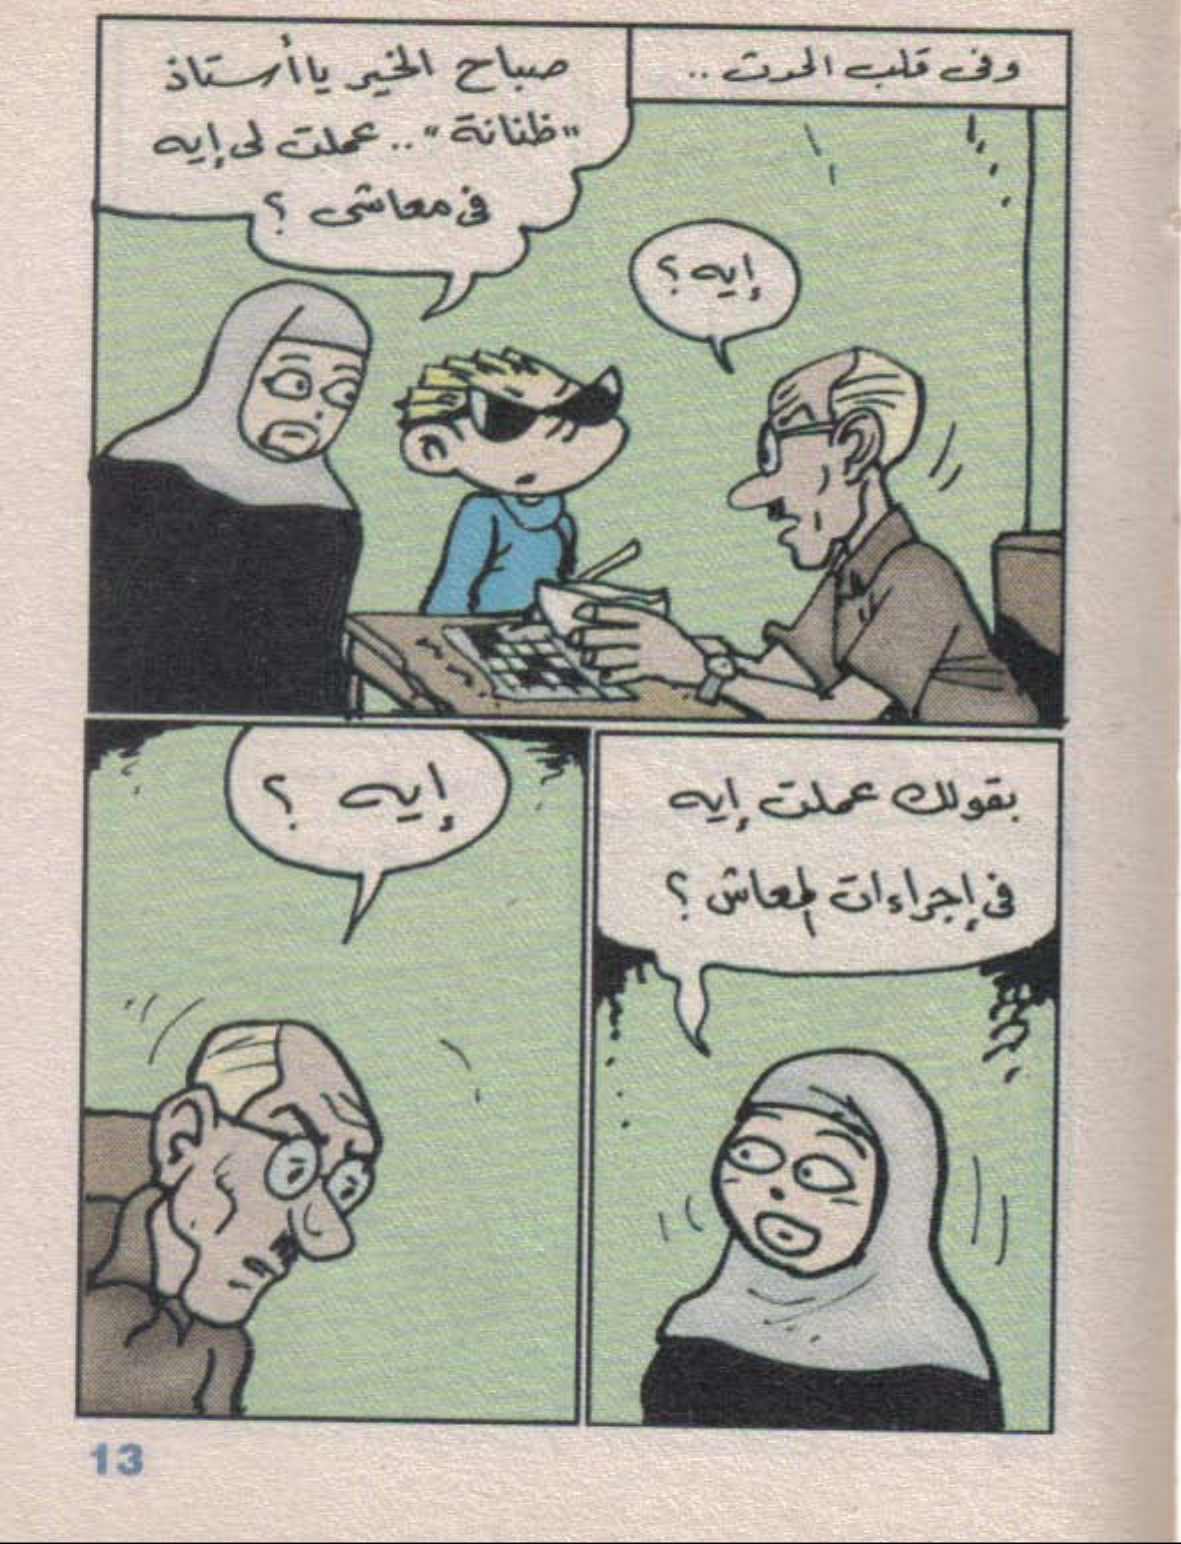 وفى قلب الحدث ..
صباح الخير يا أستاذ
"ظنانة" .. عملت لى إيه
فى معاشى ؟
إيه ؟
بقولك عملت إيه
فى إجراءات المعاش ؟
إيه ؟
13